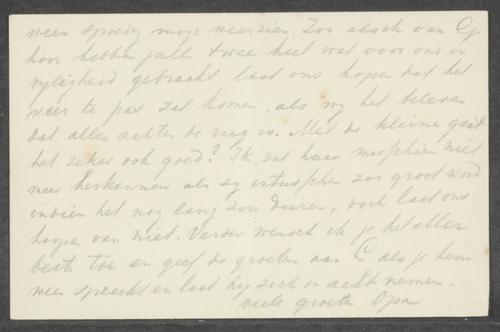 weer spoedig moge weerzien. Zoo als ik van C
hoor hebben jullie twee heel wat voor ons in
vyligheid gebracht laat ons hopen dat het
weer te pas zal komen, als wy het beleven
dat alles achter de rug is. Met de kleine gaat
het zeker ook goed? Ik zal haar misschien niet
meer herkennen als zy intusschen zoo groot word
indien het nog lang zou duren, doch laat ons
hoopen van niet. Verder wensch ik je het aller
beste toe en geef de groeten aan L als je hem
weer spreekt en laat hy zich in acht nemen.
viele groeten Opa